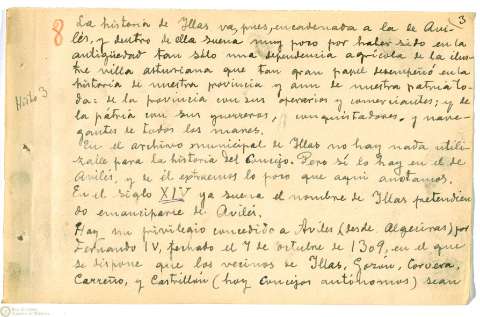 3
8
La historia de Illas va, pues, encadenada a la de Avi-
lés, y dentro de ella suena muy poco por haber sido en la
antigüedad tan sólo una dependencia agrícola de la ilus-
tre villa asturiana que tan gran papel desempeñó en la
historia de nuestra provincia y aun de nuestra patria to-
da: de la provincia con sus operarios y comerciantes; y de
la pátria con sus guerreros, conquistadores, y nave-
gantes de todos los mares.
En el archivo municipal de Illas no hay nada utili-
zable para la historia del Concejo. Pero sí lo hay en el de
Avilés, y de él extraemos lo poco que aqui anotamos.
En el siglo XIV ya suena el nombre de Illas pretendien-
do emanciparse de Avilés.
Hay un privilegio concedido a Avilés (desde Algeciras) por
Fernando IV, fechado el 7 de octubre de 1309, en el que
se dispone que los vecinos de Illas, Gozón, Corvera,
Carreño, y Castrillón (hoy Concejos autónomos) sean